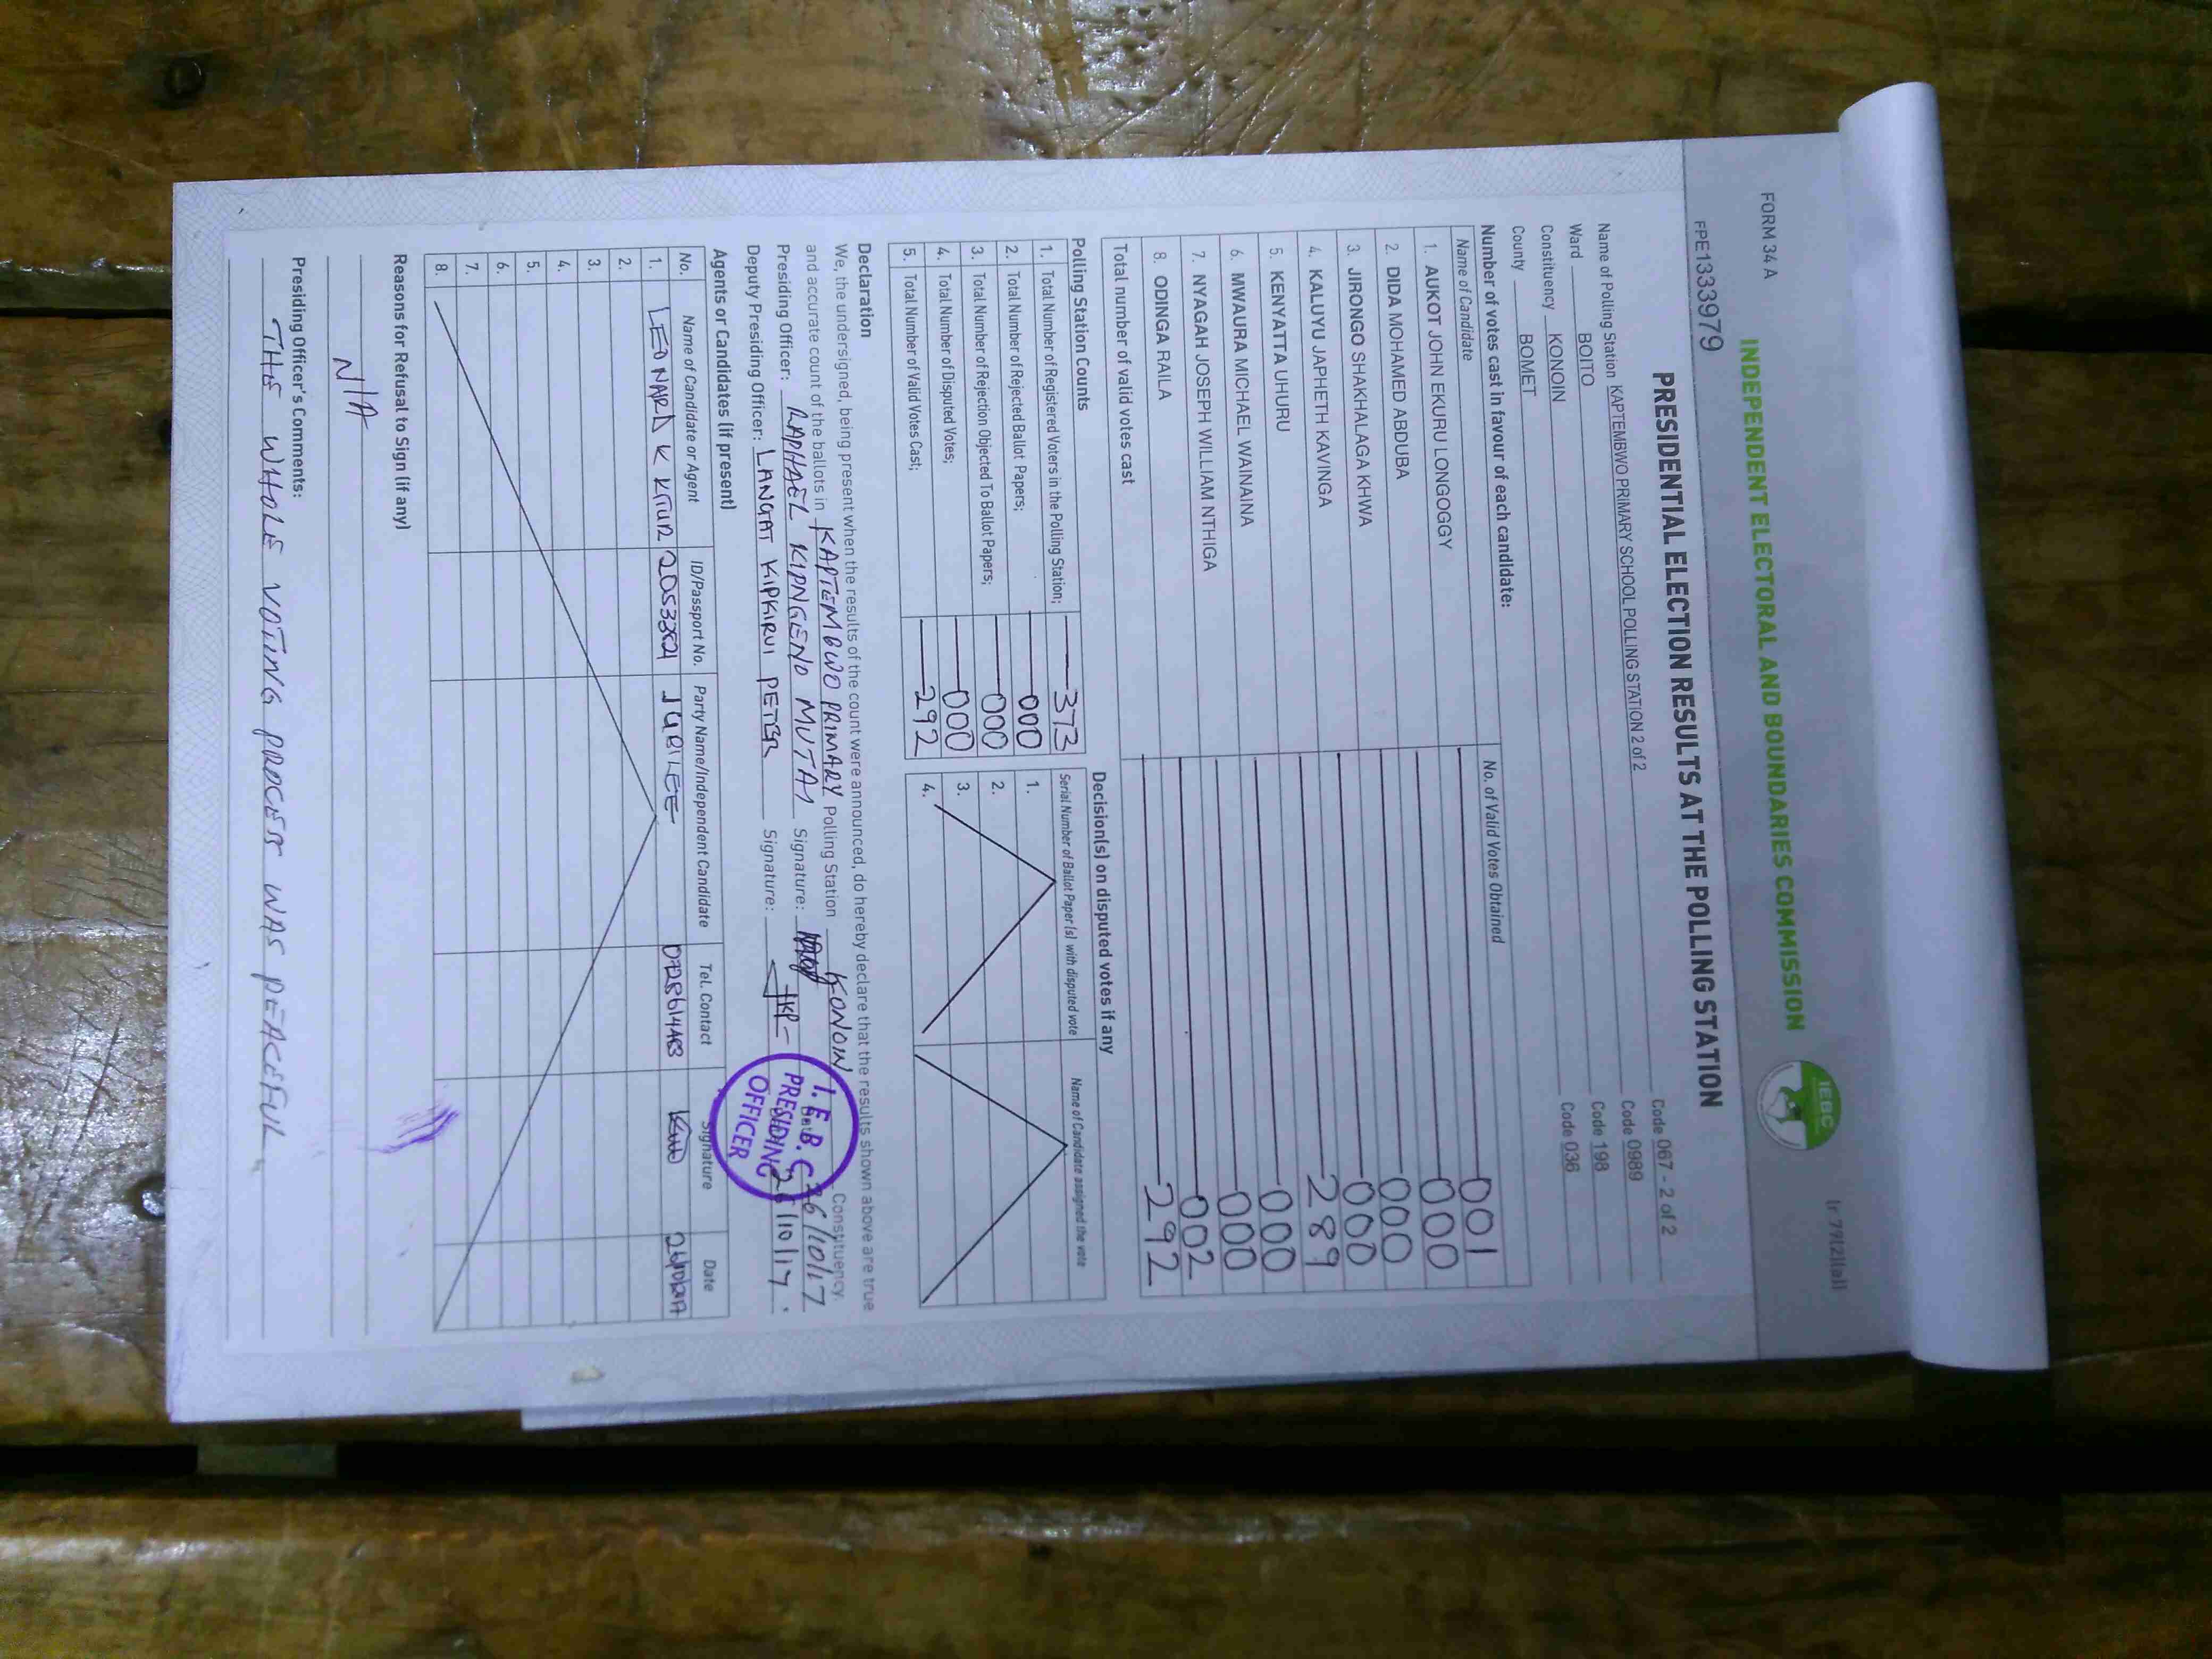 FORM 34 A
(r 79(2)(a))
INDEPENDENT ELECTORAL AND BOUNDARIES COMMISSION
IEBC
FPE1333979
PRESIDENTIAL ELECTION RESULTS AT THE POLLING STATION
Name of Polling Station KAPTEMBWO PRIMARY SCHOOL POLLING STATION 2 of 2 Code 067 - 2 of 2
Ward BOITO Code 0989
Constituency KONOIN Code 198
County BOMET Code 036
Number of votes cast in favour of each candidate:
Name of Candidate No. of Valid Votes Obtained
1. AUKOT JOHN EKURU LONGOGGY 001
2. DIDA MOHAMED ABDUBA 000
3. JIRONGO SHAKHALAGA KHWA 000
4. KALUYU JAPHETH KAVINGA 000
5. KENYATTA UHURU 289
6. MWAURA MICHAEL WAINAINA 000
7. NYAGAH JOSEPH WILLIAM NTHIGA 000
8. ODINGA RAILA 002
Total number of valid votes cast 292
Polling Station Counts
1. Total Number of Registered Voters in the Polling Station; 373
2. Total Number of Rejected Ballot Papers; 000
3. Total Number of Rejection Objected To Ballot Papers; 000
4. Total Number of Disputed Votes; 000
5. Total Number of Valid Votes Cast; 292
Decision(s) on disputed votes if any
Serial Number of Ballot Paper (s) with disputed vote Name of Candidate assigned the vote
1.
2.
3.
4.
Declaration
We, the undersigned, being present when the results of the count were announced, do hereby declare that the results shown above are true
and accurate count of the ballots in KAPTEMBWO PRIMARY Polling Station KONOIN Constituency.
Presiding Officer: RAPHAEL KIPNGENO MUTAI Signature: 26/10/17
Deputy Presiding Officer: LANGAT KIPKIRUI PETER Signature: 26/10/17.
I.E.B.C
PRESIDING
OFFICER
Agents or Candidates (if present)
No. Name of Candidate or Agent ID/Passport No. Party Name/Independent Candidate Tel. Contact Signature Date
1. LEONARD K KITUR JUBILEE
2.
3.
4.
5.
6.
7.
8.
Reasons for Refusal to Sign (if any)
N/A
Presiding Officer's Comments:
THE WHOLE VOTING PROCESS WAS PEACEFUL